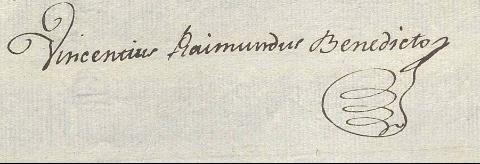 Vincentius Raimundus Benedicto